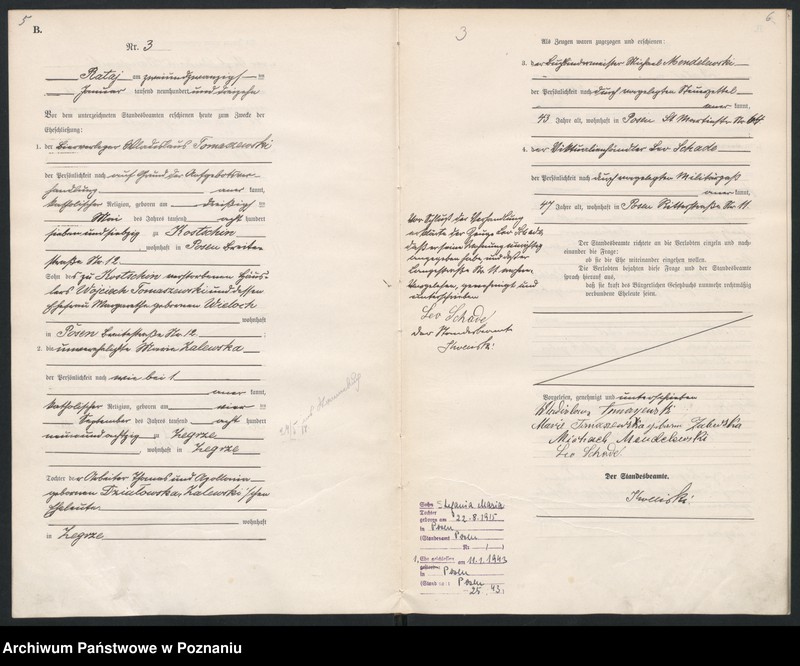 5
B.
Nr. 3
Rataj am zweiundzwanzigsten
Januar tausend neunhundert und dreizehn
Vor dem unterzeichneten Standesbeamten erschienen heute zum Zwecke der
Eheschließung:
1. der Bierverleger Wladislaus Tomaszewski
der Persönlichkeit nach auf Grund der Aufgebotsver-
handlung anerkannt,
katholischer Religion, geboren am dreißigsten
Mai des Jahres tausend acht hundert
siebenundsiebzig zu Kostschin
, wohnhaft in Posen Breite-
straße Nr. 12
Sohn des zu Kostschin verstorbenen Häus-
lers Wojciech Tomaszewski und dessen
Ehefrau Margaretha geborenen Wieloch
wohnhaft
in Posen Breitestraße Nr. 12 ;
2. die unverehelichte Marie Zalewska
der Persönlichkeit nach wie bei 1
anerkannt,
katholischer Religion, geboren am vierten
September des Jahres tausend acht hundert
neunundachtzig zu Zegrze
, wohnhaft in Zegrze
Tochter der Arbeiter Thomas und Apollonia
geborenen Dzialowska, Zalewski'schen
Eheleute
wohnhaft
in Zegrze
3
6
Als Zeugen waren zugezogen und erschienen:
3. der Michael Mendelewski
der Persönlichkeit nach durch vorgelegten Steuerzettel
anerkannt,
43 Jahre alt, wohnhaft in Posen St. Martinstr. Nr. 64
4. der Viktualienhändler Leo Schade
der Persönlichkeit nach durch vorgelegten Militärpaß
anerkannt,
47 Jahre alt, wohnhaft in Posen Ritterstraße Nr. 11.
Der Standesbeamte richtete an die Verlobten einzeln und nach-
einander die Frage:
ob sie die Ehe miteinander eingehen wollen.
Die Verlobten bejahten diese Frage und der Standesbeamte
sprach hierauf aus,
daß sie kraft des Bürgerlichen Gesetzbuchs nunmehr rechtmäßig
verbundene Eheleute seien.
Vor Schluß der Verhandlung
erklärte der Zeuge Leo Schade,
daß er seine Wohnung unrichtig
angegeben habe und daß er
Langestraße Nr. 11 wohne.
Vorgelesen, genehmigt und
unterschrieben
Leo Schade
Der Standesbeamte
Vorgelesen, genehmigt und unterschrieben
Wladislaus Tomaszewski
Marie Tomaszewska geborene Zalewska
Michael Mendelewski
Leo Schade
Der Standesbeamte.
Sohn Stefania Maria
Tochter
geboren am 22.8.1915
in Posen
(Standesamt Posen
Nr. / )
1. Ehe geschlossen am 11.1.1943
in Posen
Posen
25 43)
Archiwum Państwowe w Poznaniu